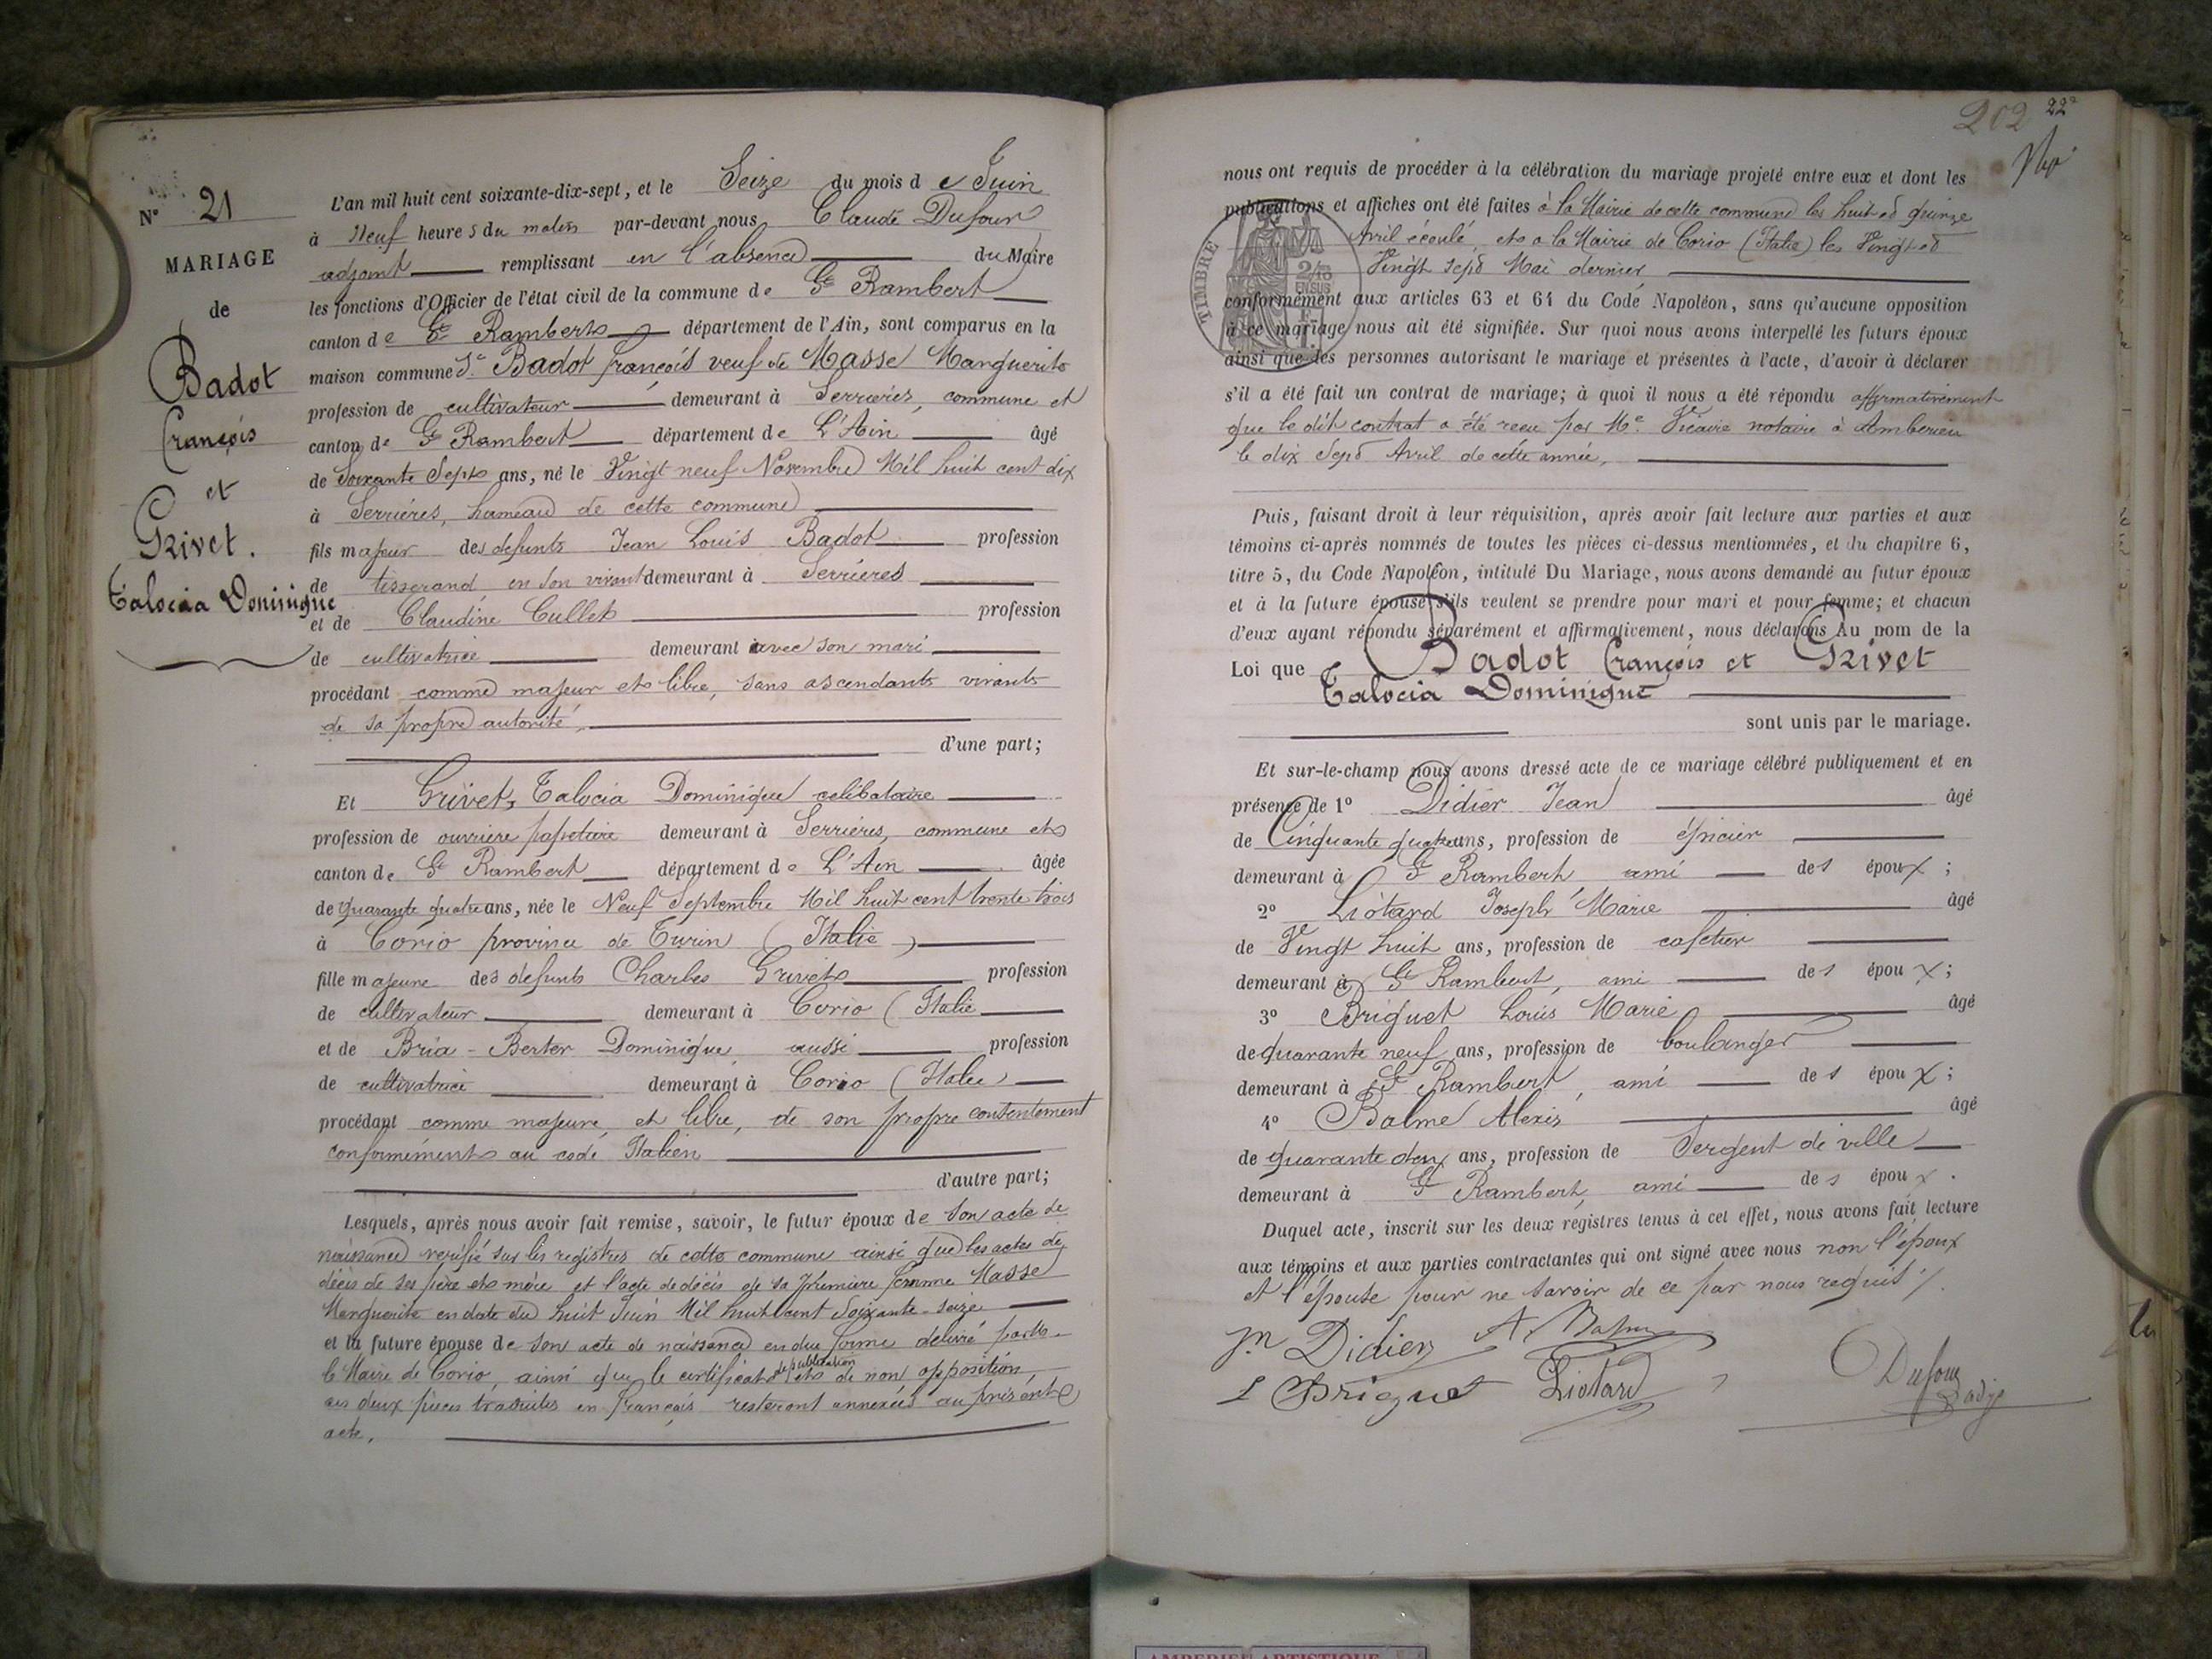 N° 21
MARIAGE
de
Badot
François
et
Grivet.
Talocia Dominique
L'an mil huit cent soixante-dix-sept, et le Seize du mois de Juin
à Neuf heures du matin par-devant nous Claude Dufour
adjoint remplissant en l'absence du Maire
les fonctions d'Officier de l'état civil de la commune de St Rambert
canton de St Rambert département de l'Ain, sont comparus en la
maison commune Sr Badot François veuf de Masse Marguerite
profession de cultivateur demeurant à Serrières, commune et
canton de St Rambert département de L'Ain âgé
de Soixante Sept ans, né le Vingt neuf Novembre Mil huit cent dix
à Serrières, hameau de cette commune
fils majeur des defunts Jean Louis Badot profession
de tisserand en son vivant demeurant à Serrières
et de Claudine Cullet profession
de cultivatrice demeurant avec son mari
procédant comme majeur et libre, sans ascendants vivants
de sa propre autorité,
d'une part;
Et Grivet, Talocia Dominique celibataire
profession de ouvrière papetière demeurant à Serrières, commune et
canton de St Rambert département de L'Ain âgée
de quarante quatre ans, née le Neuf Septembre Mil huit cent trente trois
à Corio province de Turin (Italie)
fille majeure des defunts Charles Grivet profession
de cultivateur demeurant à Corio (Italie
et de Bria-Berter Dominique, aussi profession
de cultivatrice demeurant à Corio (Italie)
procédant comme majeure, et libre, de son propre contentement
conformément au code Italien
d'autre part;
Lesquels, après nous avoir fait remise, savoir, le futur époux de son acte de
naissance verifié sur les registres de cette commune ainsi que les actes de
décès de ses père et mère et l'acte de décès de sa première femme Masse
Marguerite en date du huit Juin Mil huit cent Soixante-seize
et la future épouse de son acte de naissance en due forme delivré par
le Maire de Corio, ainsi que le certificat de publication et de non opposition,
ces deux pièces traduites en français resteront annexées au présent
acte.
202 22e
nous ont requis de procéder à la célébration du mariage projeté entre eux et dont les
publications et affiches ont été faites à la Mairie de cette commune les huit et quinze
Avril écoulé, et a la Mairie de Corio (Italie) les Vingt et
Vingt sept Mai dernier
conformément aux articles 63 et 64 du Code Napoléon, sans qu'aucune opposition
à ce mariage nous ait été signifiée. Sur quoi nous avons interpellé les futurs époux
ainsi que les personnes autorisant le mariage et présentes à l'acte, d'avoir à déclarer
s'il a été fait un contrat de mariage; à quoi il nous a été répondu affirmativement
que le dit contrat a été reçu par Me Vicaire notaire à Amberieu
le dix Sept Avril de cette année,
TIMBRE
2/10
EN SUS
Puis, faisant droit à leur réquisition, après avoir fait lecture aux parties et aux
témoins ci-après nommés de toutes les pièces ci-dessus mentionnées, et du chapitre 6,
titre 5, du Code Napoléon, intitulé Du Mariage, nous avons demandé au futur époux
et à la future épouse s'ils veulent se prendre pour mari et pour femme; et chacun
d'eux ayant répondu séparément et affirmativement, nous déclarons Au nom de la
Loi que Badot François et Grivet
Talocia Dominique
sont unis par le mariage.
Et sur-le-champ nous avons dressé acte de ce mariage célébré publiquement et en
présence de 1° Didier Jean âgé
de Cinquante quatre ans, profession de épicier
demeurant à St Rambert ami des époux;
2° Liotard Joseph Marie âgé
de Vingt huit ans, profession de cafetier
demeurant à St Rambert, ami des époux;
3° Briguet Louis Marie âgé
de quarante neuf ans, profession de boulanger
demeurant à St Rambert, ami des époux;
4° Balme Alexis âgé
de quarante deux ans, profession de Sergent de ville
demeurant à St Rambert, ami des époux.
Duquel acte, inscrit sur les deux registres tenus à cet effet, nous avons fait lecture
aux témoins et aux parties contractantes qui ont signé avec nous non l'époux
et l'épouse pour ne savoir de ce par nous requis
Jn Didier A. Balme
L Briguet Liotard
Dufour
adj
AMBERIEU ARTISTIQUE